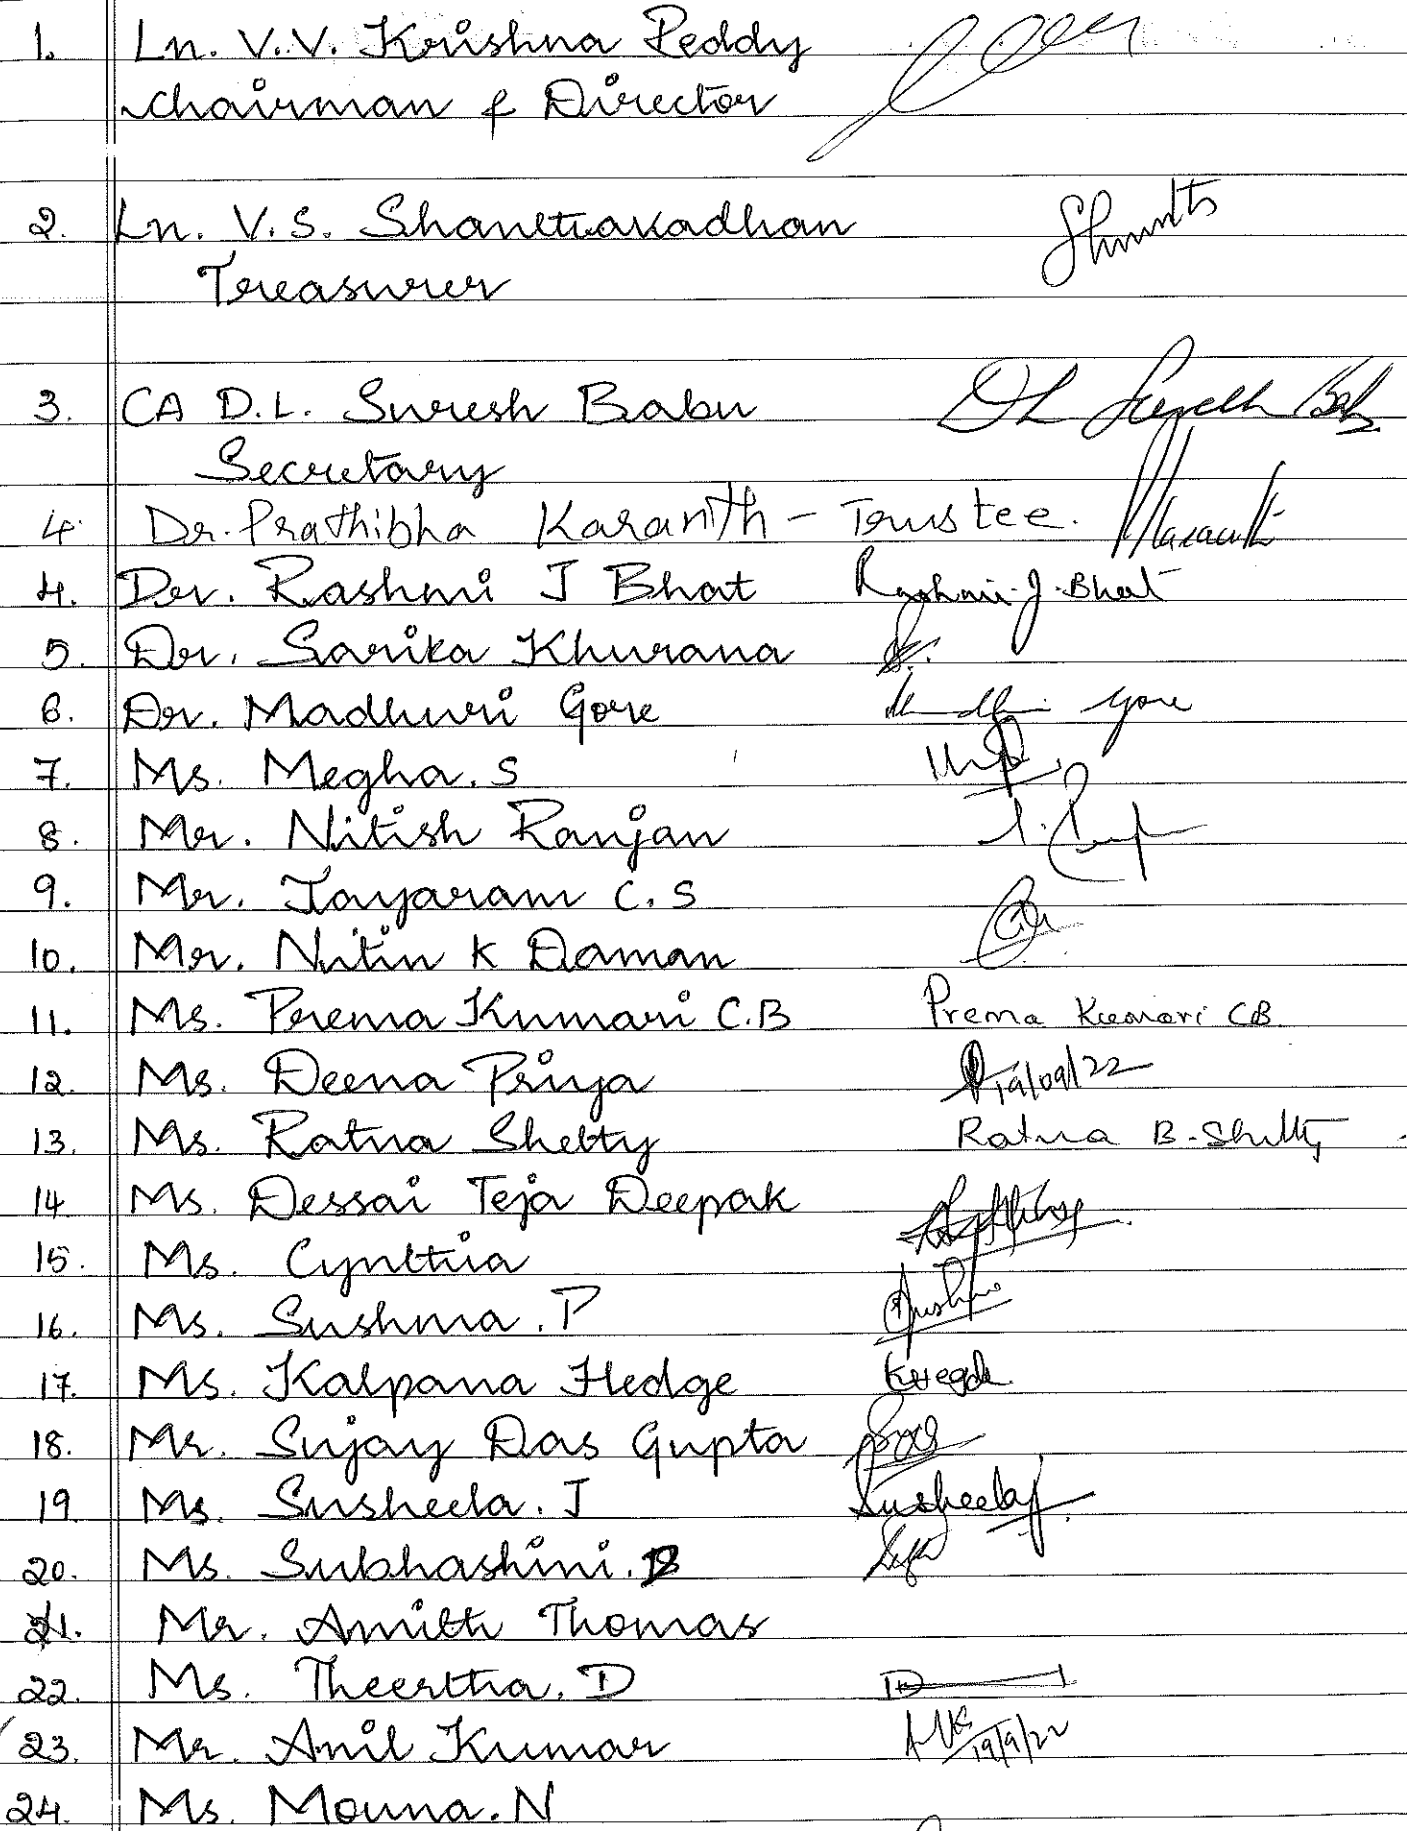 1. Ln. V.V. Krishna Reddy
Chairman & Director
2. Ln. V.S. Shanthakadhan
Treasurer
3. CA D.L. Suresh Babu DL Suresh Bab
Secretary
4. Dr. Prathibha Karanth - Trustee. Karanth
4. Dr. Rashmi J Bhat Rashmi. J. Bhat
5. Dr. Sarika Khurana
6. Dr. Madhuri Gore Gore
7. Ms. Megha. S
8. Mr. Nitish Ranjan
9. Mr. Jayaram C. S
10. Mr. Nitin K Daman
11. Ms. Prema Kumari C.B Prema Kumari CB
12. Ms. Deena Priya 19/09/22
13. Ms. Ratna Shetty Ratna B. Shetty
14. Ms. Dessai Teja Deepak
15. Ms. Cynthia
16. Ms. Sushma. P
17. Ms. Kalpana Hedge KHegde
18. Mr. Sujay Das Gupta
19. Ms. Susheela. J SusheelaJ
20. Ms. Subhashini. B
21. Mr. Amith Thomas
22. Ms. Theertha. D
23. Mr. Anil Kumar 19/9/22
24. Ms. Mouna. N